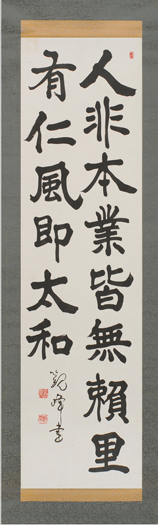 人非本業皆無頼里
有仁風即太和
観峰書